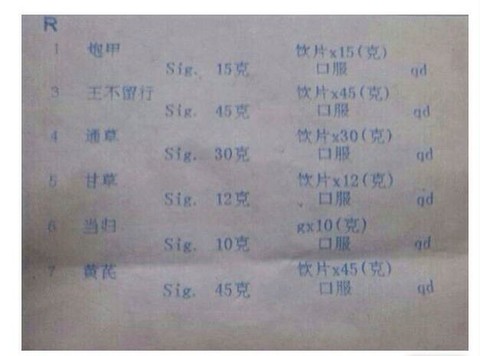 R
1 炮甲 饮片x15(克)
Sig. 15克 口服 qd
3 王不留行 饮片x45(克)
Sig. 45克 口服 qd
4 通草 饮片x30(克)
Sig. 30克 口服 qd
5 甘草 饮片x12(克)
Sig. 12克 口服 qd
6 当归 gx10(克)
Sig. 10克 口服 qd
7 黄芪 饮片x45(克)
Sig. 45克 口服 qd